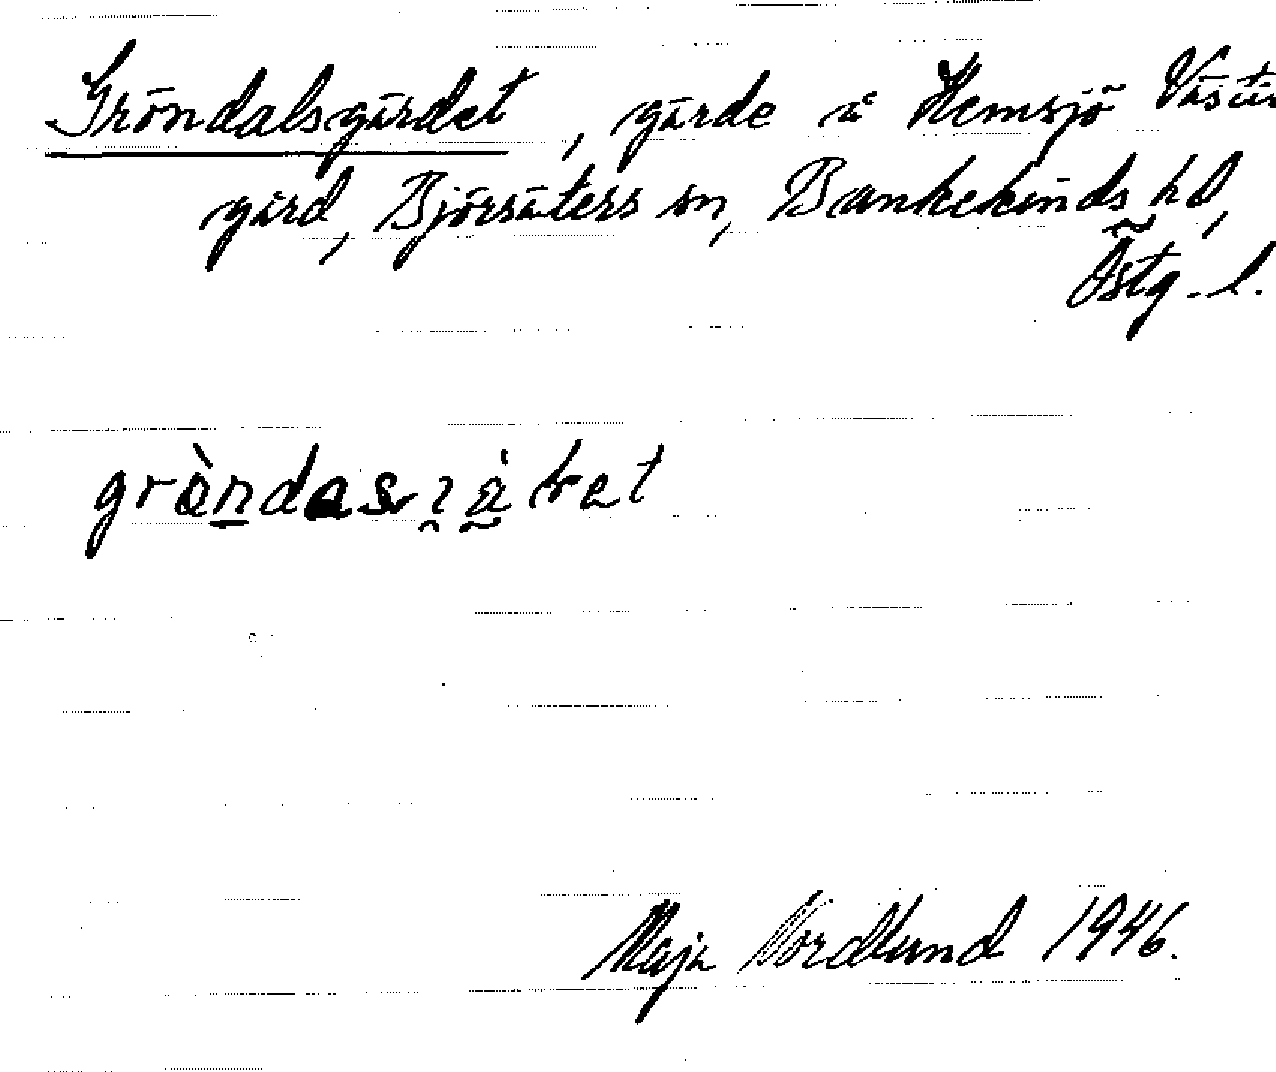 Gröndalsgärdet, gärde å Hemsjö Väster
gård, Björsäters sn, Bankekinds hd,
Östg. l.
Maja Nordlund 1946.